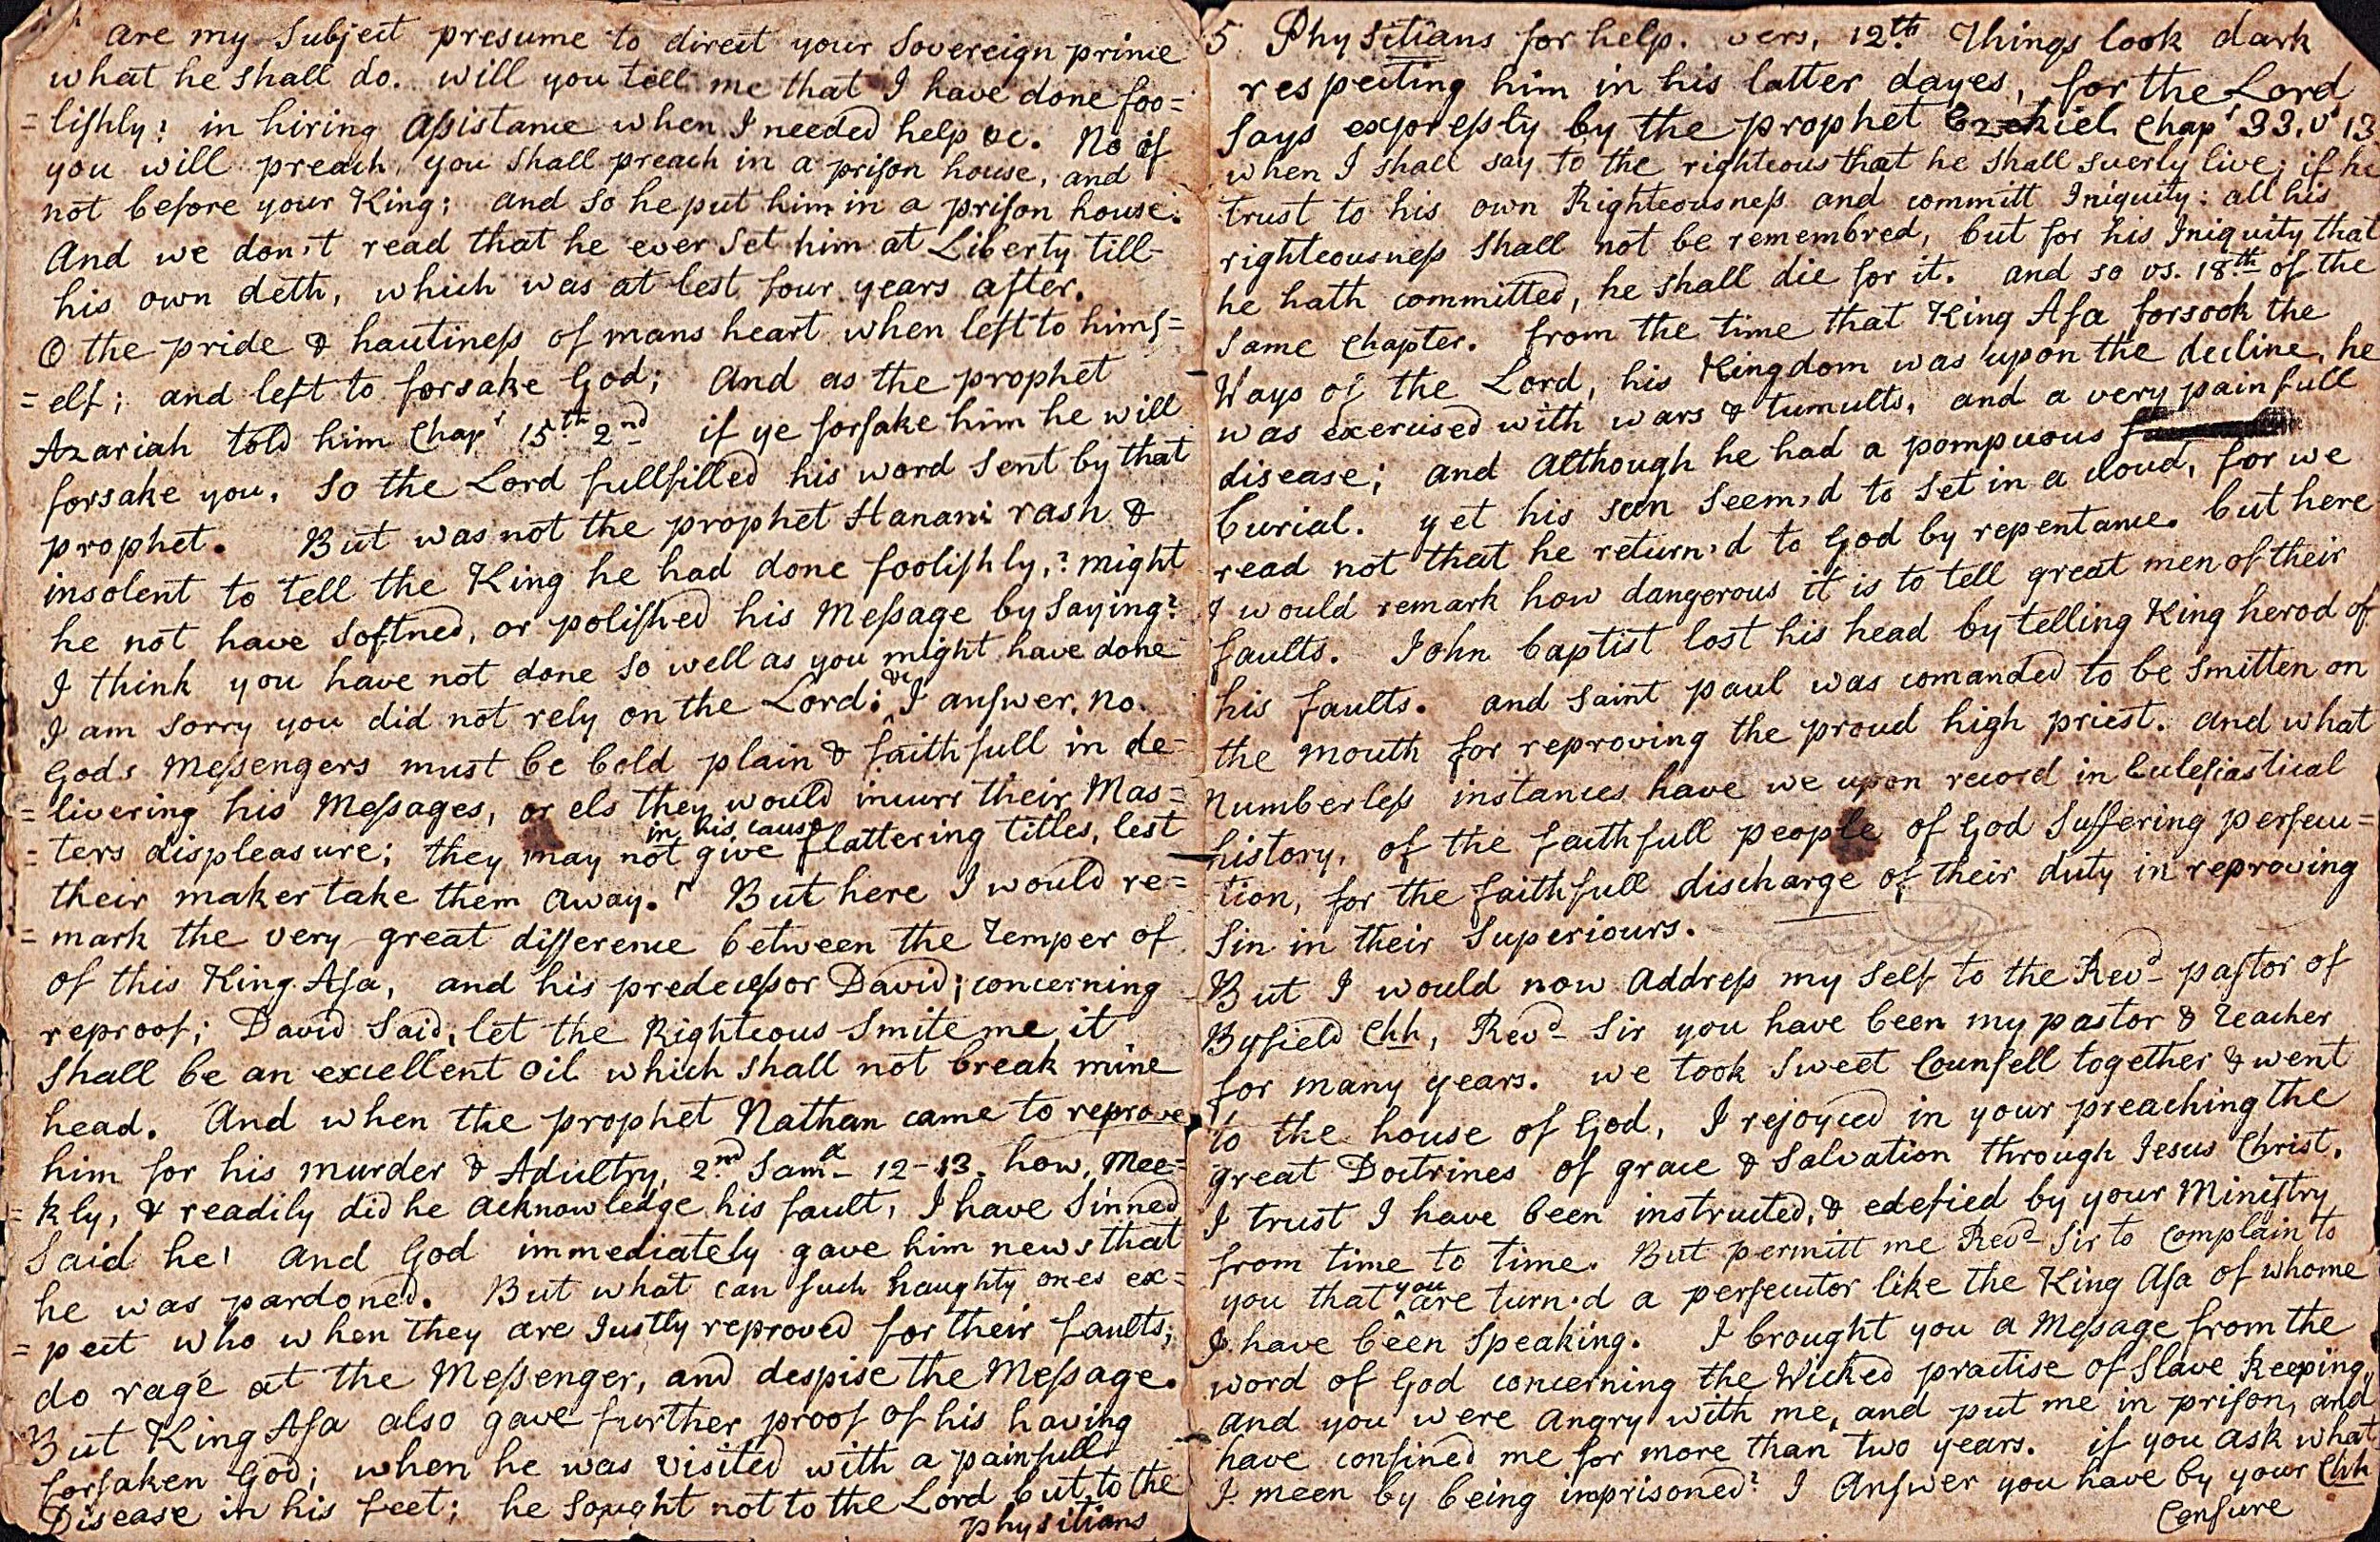 are my Subject presume to direct your Sovereign prince
what he shall do. will you tell me that I have done foo=
=lishly? in hiring Assistance when I needed help &c. No if
you will preach you shall preach in a prison house, and
not before your King; and so he put him in a prison house.
And we don't read that he ever set him at Liberty till
his own deth, which was at lest four years after.
O the pride & hautiness of mans heart when left to hims=
=elf; and left to forsake God; And as the prophet
Azariah told him Chapr 15th 2nd if ye forsake him he will
forsake you, So the Lord fullfilled his word sent by that
prophet. But was not the prophet Hanani rash &
insolent to tell the King he had done foolishly,? might
he not have softned, or polished his Message by saying?
I think you have not done so well as you might have done
I am sorry you did not rely on the Lord: &c I answer, no.
Gods Messengers must be bold plain & faithfull in de=
=livering his Messages, or els they would incurr their Mas=
in his cause
=ters displeasure; they may not give flattering titles, lest
their maker take them away. But here I would re=
=mark the very great difference between the Temper of
of this King Asa, and his predecessor David; concerning
reproof; David Said, let the Righteous Smite me it
shall be an excellent oil which shall not break mine
head. And when the prophet Nathan came to reprove
him for his murder & Adultry, 2nd Saml 12-13. how, Mee=
=kly, & readily did he acknowledge his fault, I have Sinned
Said he! and God immediately gave him news that
he was pardoned. But what can such haughty ones ex=
=pect who when they are Justly reproved for their faults;
do rage at the Messenger, and despise the Message.
But King Asa also gave further proof of his having
forsaken God; when he was visited with a painfull
Disease in his feet; he sought not to the Lord but to the
physitians
5 Physitians for help. vers, 12th Things look dark
respecting him in his latter dayes, for the Lord
Says expressly by the prophet Ezekiel Chapr 33. v 13
when I shall say to the righteous that he shall suerly live; if he
trust to his own Righteousness and committ Iniquity: all his
righteousness shall not be remembred, but for his Iniquity that
he hath committed, he shall die for it. and so vs. 18th of the
same Chapter. from the time that King Asa forsook the
Ways of the Lord, his Kingdom was upon the decline, he
was exercised with wars & tumults, and a very painfull
disease; and although he had a pompuous
burial. yet his sun seem'd to set in a cloud, for we
read not that he return'd to God by repentance. but here
I would remark how dangerous it is to tell great men of their
faults. John baptist lost his head by telling King herod of
his faults. and saint paul was comanded to be smitten on
the mouth for reproving the proud high priest. and what
Numberless instances have we upon record in Eclesiastical
history, of the faithfull people of God Suffering persecu=
tion, for the faithfull discharge of their duty in reproving
Sin in their Superiours.
But I would now Address my Self to the Revd pastor of
Byfield Chh, Revd Sir you have been my pastor & Teacher
for many years. we took Sweet Counsell together & went
to the house of God, I rejoyced in your preaching the
great Doctrines of grace & Salvation through Jesus Christ.
I trust I have been instructed, & edefied by your Ministry
from time to time. But permitt me Revd Sir to Complain to
you that you are turn'd a persecutor like the King Asa of whome
I have been Speaking. I brought you a Message from the
word of God concerning the Wicked practise of Slave keeping,
and you were angry with me, and put me in prison, and
have confined me for more than two years. if you ask what
I meen by being imprisoned? I Answer you have by your Chh
Censure